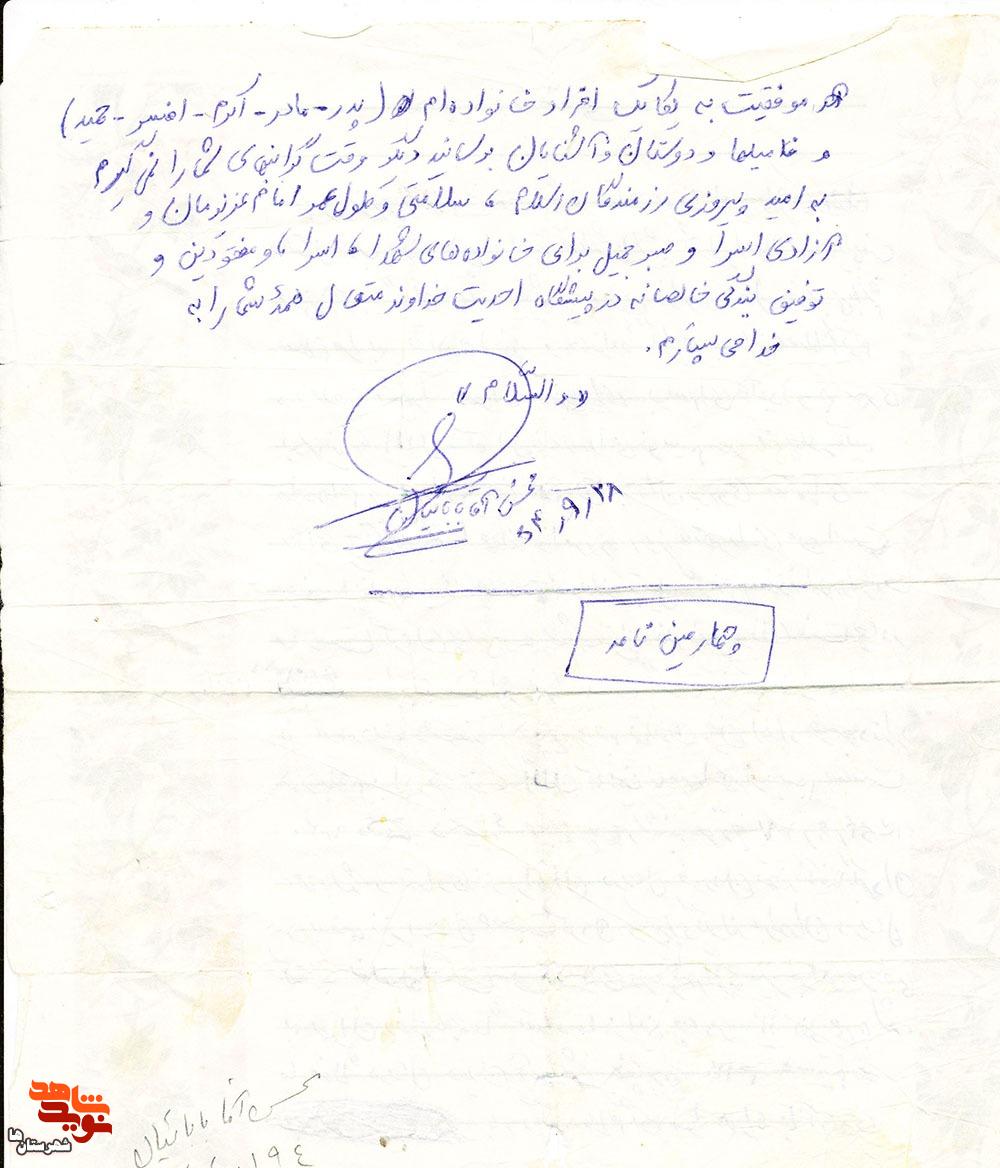 هر موفقیت به یکایک افراد خانواده‌ام (پدر - مادر - اکرم - افسر - حمید)
و فامیلها و دوستان و آشنایان برسانید دیگر وقت گرانبهای شما را نمی‌گیرم
به امید پیروزی رزمندگان اسلام ، سلامتی و طول عمر امام عزیزمان و
آزادی اسرا و صبر جمیل برای خانواده‌های شهدا ، اسرا ، و مفقودین و
توفیق بندگی خالصانه در پیشگاه احدیت خداوند متعال همهٔ شما را به
خدا می سپارم .
« والسّلام »
محسن آقابابائیان
۶۴/۹/۲۸
چهارمین نامه
محسن آقا بابائیان
نوید شاهد
شهرستان ها